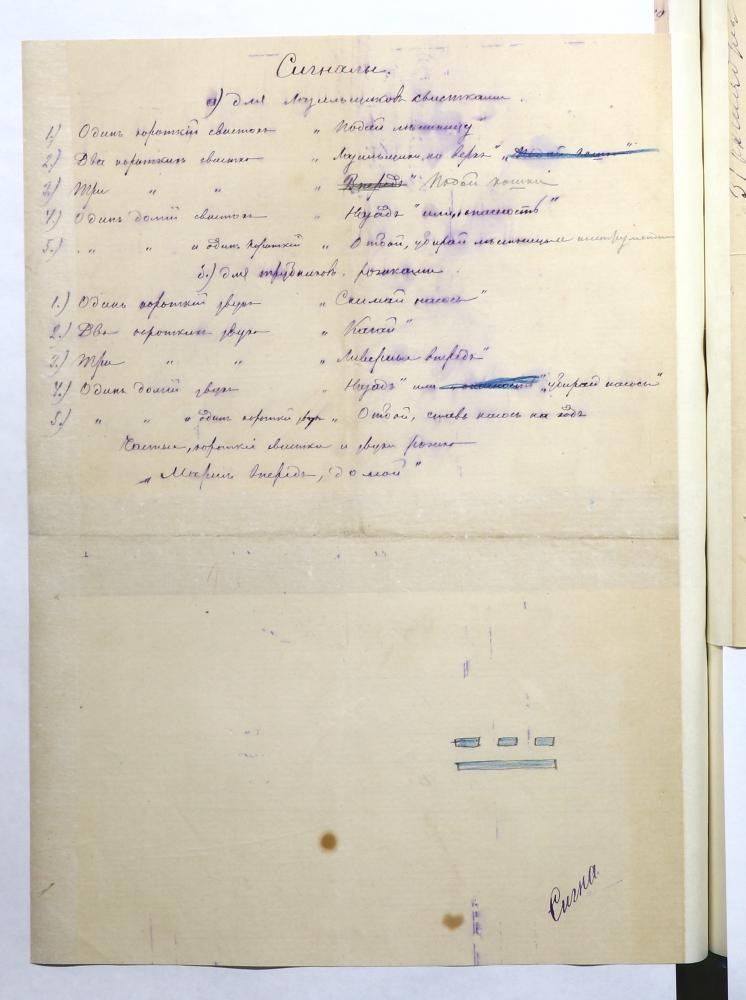 Сигналы.
а) для лазальщиковъ свистками.
1.) Одинъ короткій свистокъ „ Подай лѣстницу"
2.) Два короткихъ свистка „ Лазальщики, на верхъ" „Подай кошки"
3.) Три „ „ „ Впередъ" Подай кошки
4.) Одинъ долгій свистокъ „ Назадъ" или „опасность"
5.) „ „ и одинъ короткій „ Отбой, убирай лѣстницы и инструменты
б.) для трубниковъ. рожками.
1.) Одинъ короткій звукъ „ Снимай насосъ"
2.) Два короткихъ звука „ Качай"
3.) Три „ „ „ впередъ"
4.) Одинъ долгій звукъ „ Назадъ" или „опасность" „убирай насосы"
5.) „ „ и одинъ короткій звукъ „ Отбой, ставь насосъ на ходъ
Частые, короткіе свистки и звуки рожка
„ Маршъ впередъ, домой"
Сигна